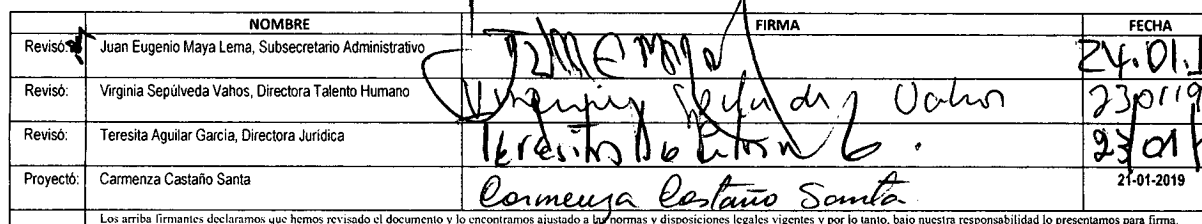 NOMBRE FIRMA FECHA
Revisó: Juan Eugenio Maya Lema, Subsecretario Administrativo 24.01.
Revisó: Virginia Sepúlveda Vahos, Directora Talento Humano Virginia Sepúlveda Vahos 230119
Revisó: Teresita Aguilar García, Directora Jurídica Teresita 23/01
Proyectó: Carmenza Castaño Santa Carmenza Castaño Santa 21-01-2019
Los arriba firmantes declaramos que hemos revisado el documento y lo encontramos ajustado a las normas y disposiciones legales vigentes y por lo tanto, bajo nuestra responsabilidad lo presentamos para firma.